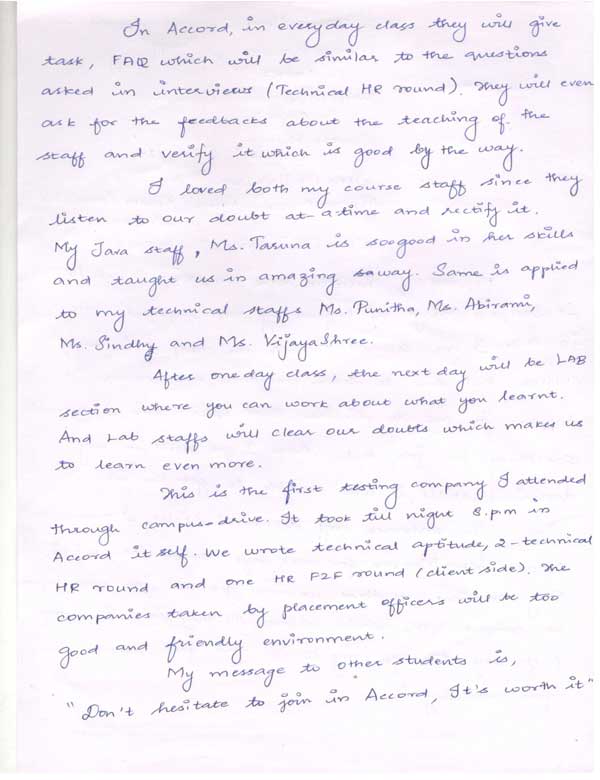 In Accord, in everyday class they will give
task, FAQ which will be similar to the questions
asked in interviews (Technical HR round). They will even
ask for the feedbacks about the teaching of the
staff and verify it which is good by the way.
I loved both my course staff since they
listen to our doubt at-a time and rectify it.
My Java staff, Ms. Taruna is soo good in her skills
and taught us in amazing away. Same is applied
to my technical staffs Ms. Punitha, Ms. Abirami,
Ms. Sindhy and Ms. VijayaShree.
After one day class, the next day will be LAB
section where you can work about what you learnt.
And Lab staffs will clear our doubts which makes us
to learn even more.
This is the first testing company I attended
through campus-drive. It took till night 8.pm in
Accord it self. We wrote technical aptitude, 2-technical
HR round and one HR F2F round (client side). The
companies taken by placement officers will be too
good and friendly environment.
My message to other students is,
"Don't hesitate to join in Accord, It's worth it"